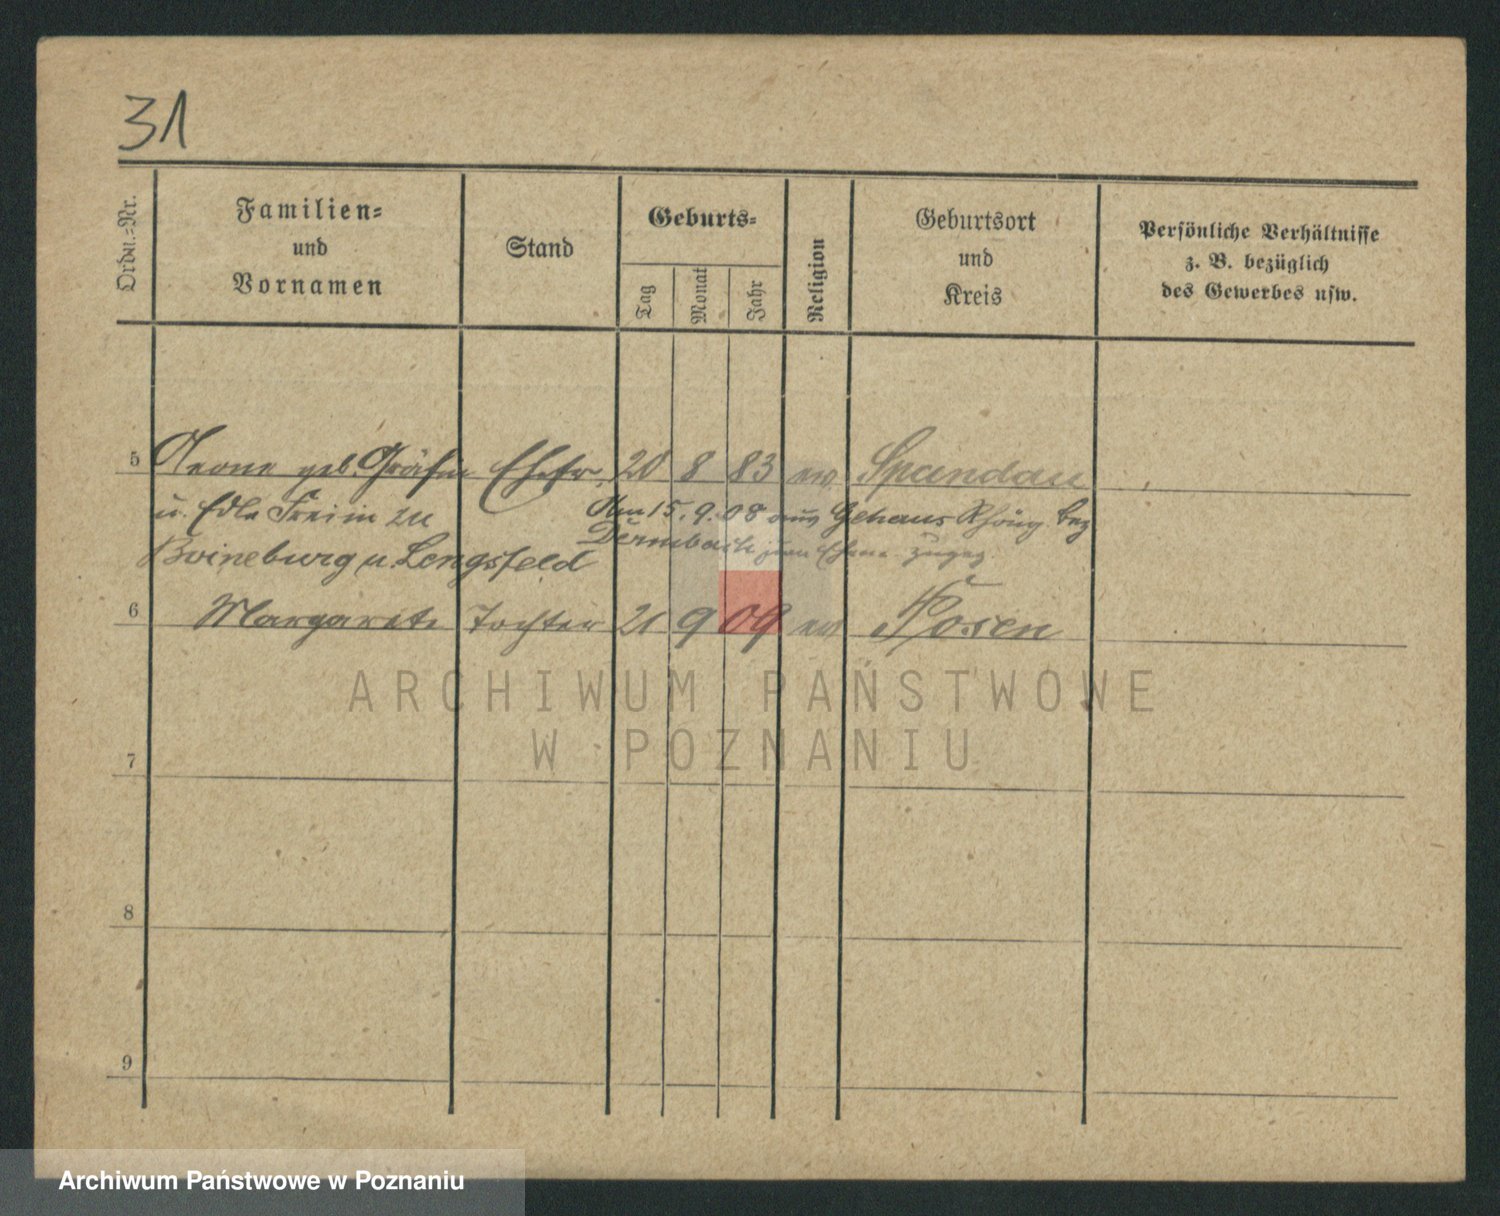 31
Ordn.-Nr.
Familien-
und
Vornamen
Stand
Geburts-
Tag
Monat
Jahr
Religion
Geburtsort
und
Kreis
Persönliche Verhältnisse
z. B. bezüglich
des Gewerbes usw.
5 Leone geb. Gräfin Ehefr. 20 8 83 ev Spandau
u. Edle Freiin zu Am 15.9.08 aus Gehaus Rhöng. bez
Boineburg u. Lengsfeld Dermbach zum Ehem. zugez.
6 Margarete Tochter 21 9 09 ev Posen
ARCHIWUM PAŃSTWOWE
W POZNANIU
7
8
9
Archiwum Państwowe w Poznaniu